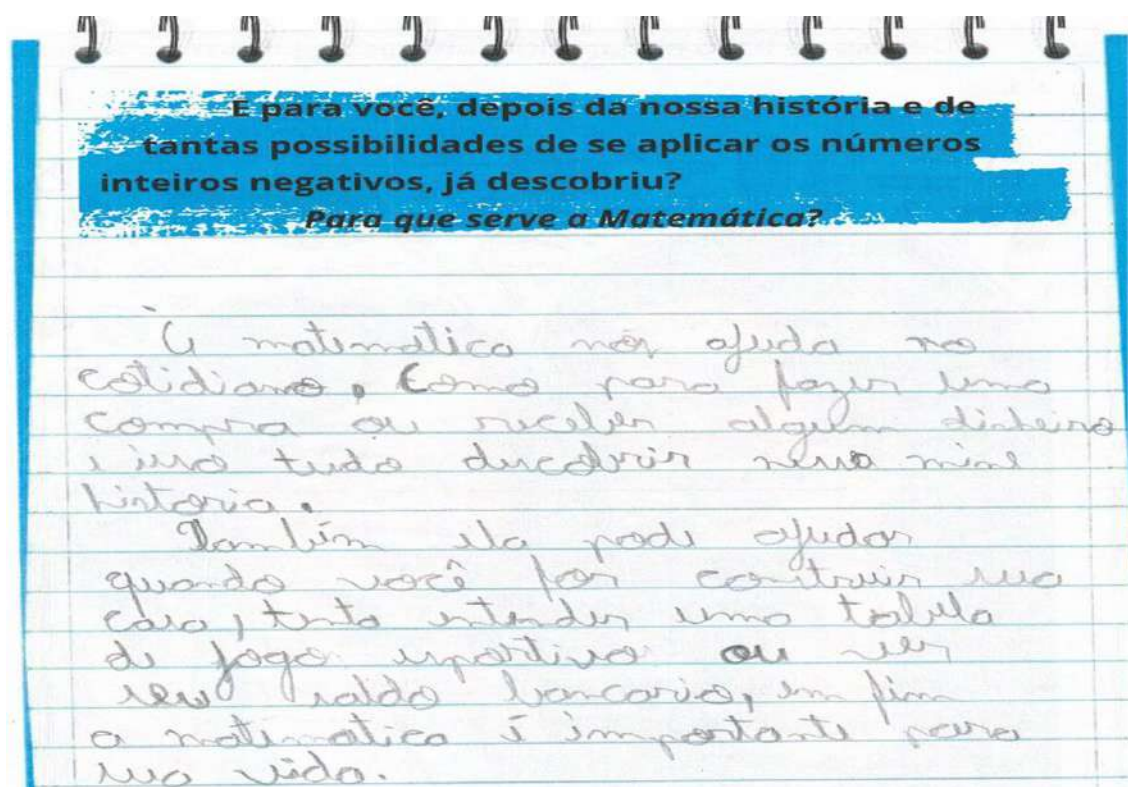 E para você, depois da nossa história e de
tantas possibilidades de se aplicar os números
inteiros negativos, já descobriu?
Para que serve a Matemática?
A matemática nos ajuda no
cotidiano, como para fazer uma
compra ou receber algum dinheiro
e isso tudo descobrir nessa mine
historia.
Também ela pode ajudar
quando você for construir sua
casa, tenta entender uma tabela
de jogo esportivo ou ver
seu saldo bancario, em fim
a matematica é importante para
sua vida.